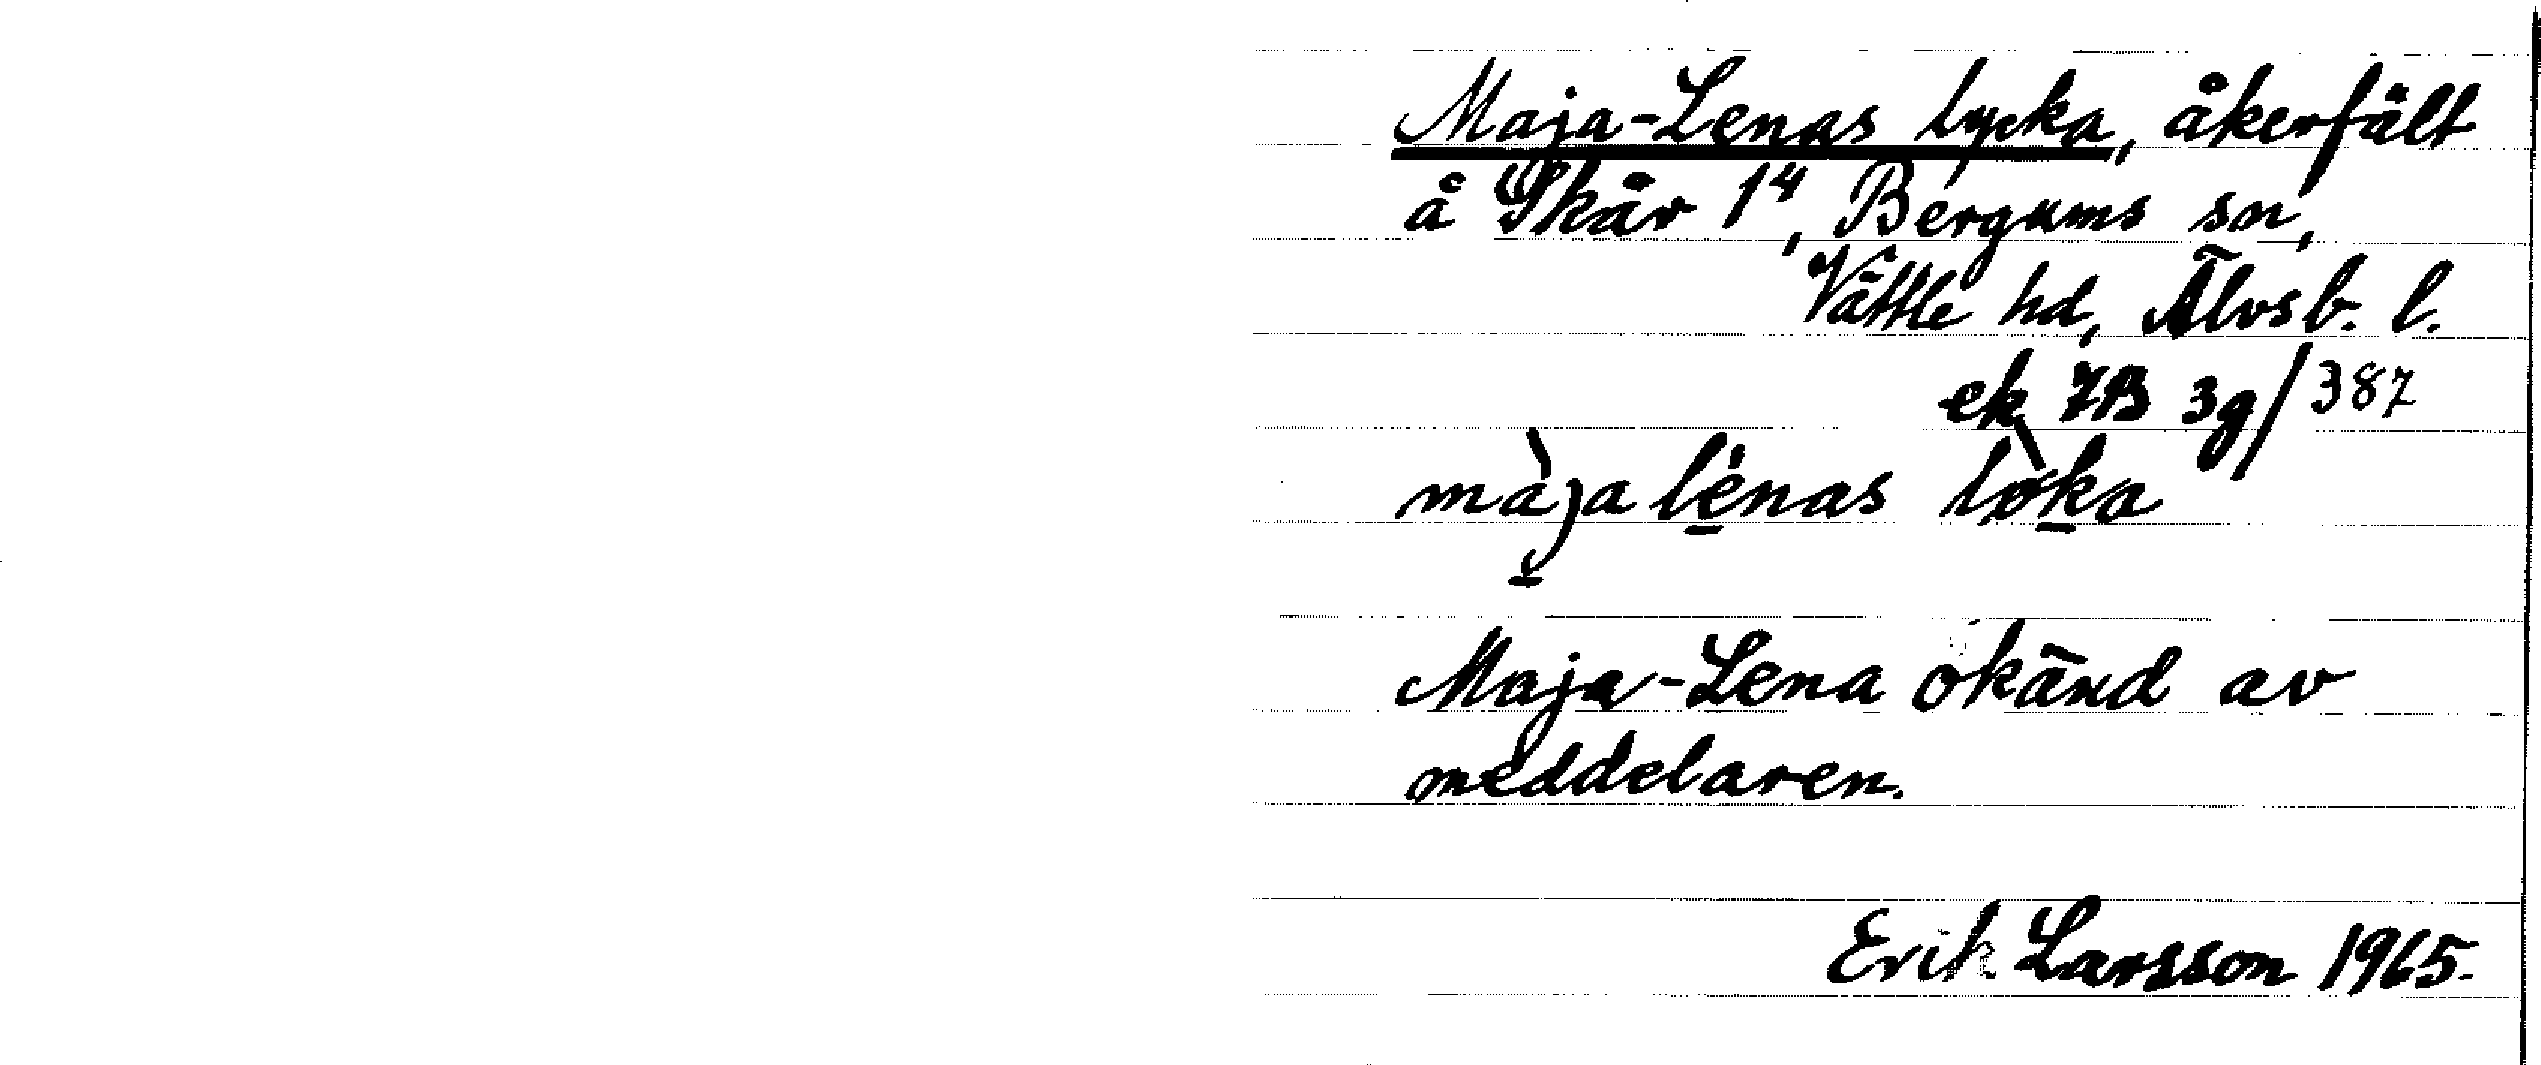 Maja-Lenas lycka, åkerfält
å Skår 1⁴, Bergums sn,
Vättle hd, Älvsb. l.
ek 7B 3g/387
màja lénas lòka
Maja-Lena okänd av
meddelaren.
Erik Larsson 1965.